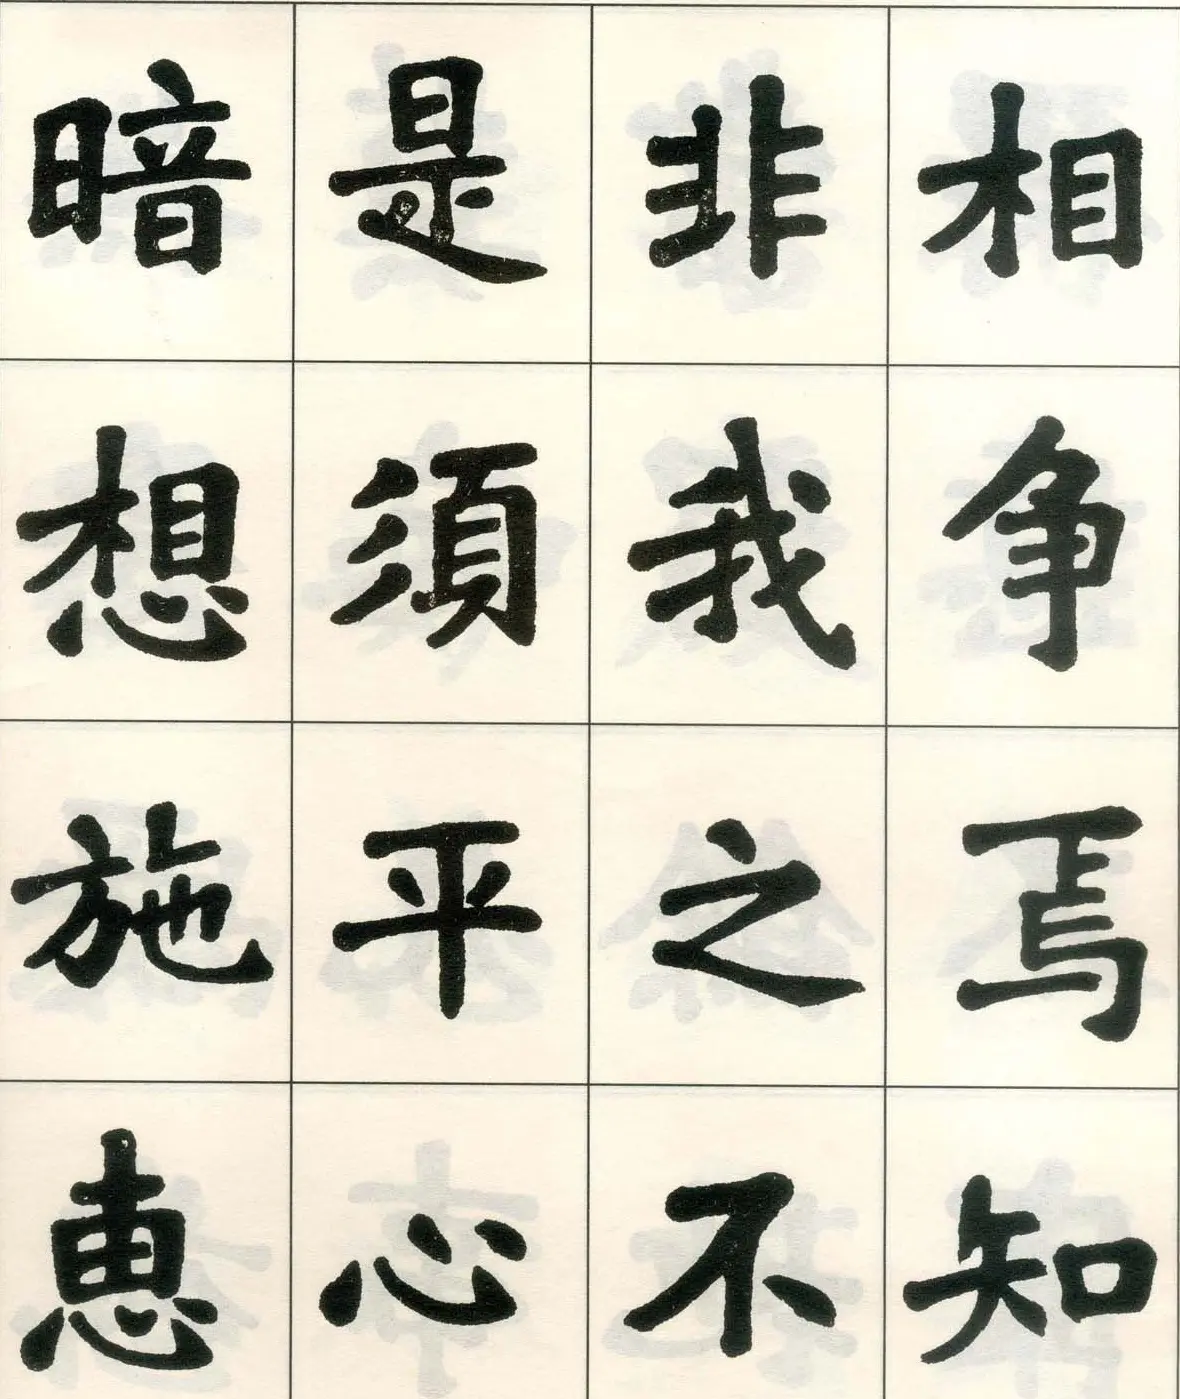 相争焉知
非我之不
是須平心
暗想施恵